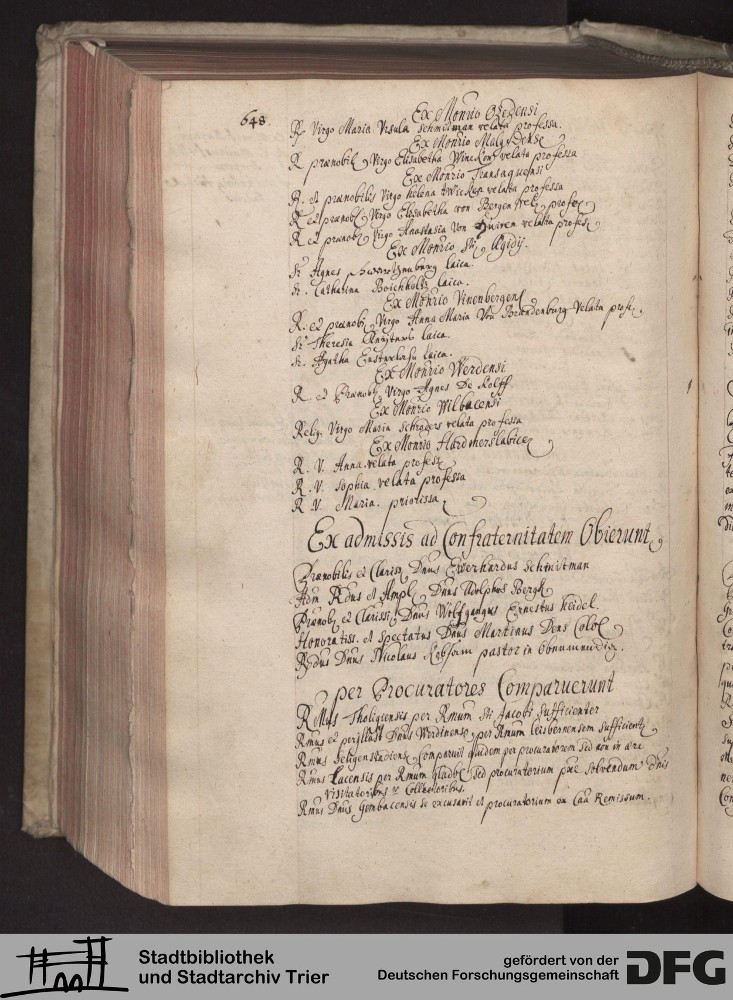 648
Ex Monrio
R. Virgo Maria Vrsula Schmitman velata professa.
Ex Monrio
R. prænobil Virgo Elisabetha velata professa
Ex Monrio Transaquensi
R. et prænobilis Virgo Helena velata professa
R. et prænob. Virgo Elisabetha von Bergen vel. profes.
R. et prænob. Virgo Anastasia Von velata profes.
Ex Monrio Sti Ægidij.
Sr. Agnes laica.
Sr. Catharina Boichholtz laica.
Ex Monrio Vinenbergens
R. et prænob. Virgo Anna Maria Von Brandenburg Velata profes.
Sr. Theresia laica.
Sr. Agatha laica.
Ex Monrio Werdensi
R. et Prænob. Virgo Agnes De Rolff
Ex Monrio Wilbacensi
Relig. Virgo Maria Schröders velata professa
Ex Monrio
R. V. Anna velata profess
R. V. Sophia velata professa
R. V. Maria. priorissa
Ex admissis ad Confraternitatem Obierunt
Prænobilis et Clariss. Dnus Everhardus Schmitman
Adm Rdus et Ampl. Dnus Adolphus Bergh
Prænob. et Clarissi. Dnus Wolfgangus Ernestus Heidel.
Honoratiss. et Spectatus Dnus Martinus Dens Colo
Rdus Dnus Nicolaus pastor in
per Procuratores Comparuerunt
R Mus Tholigiensis per Rmum Sti Jacobi Sufficienter
Rmus et perillust Dnus Werdinens. per Rmum leisbornensem sufficient
Rmus Seligenstadiens. Comparuit quidem per procuratorem sed non in ære
Rmus Lacensis per Rmum gladb. sed procuratorium præ. solvendum dnis
Visitatoribus et Collectoribus.
Rmus Dnus gembacensis se excusavit et procuratorium ex Cau Remissum.
Stadtbibliothek
und Stadtarchiv Trier
gefördert von der
Deutschen Forschungsgemeinschaft
DFG